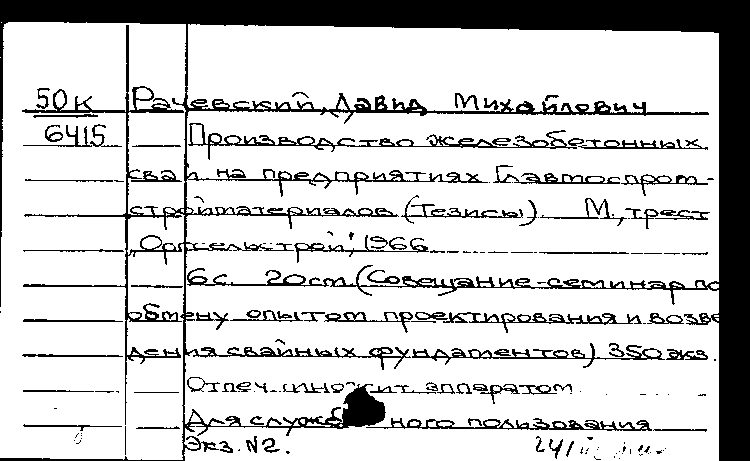 50к Рачевский, Давид Михайлович
6415 Производство железобетонных
свай на предприятиях Главмоспром-
стройматериалов (Тезисы) М., трест
„Оргсельстрой", 1966
6 с. 20 cm (Совещание-семинар по
обмену опытом проектирования и возве
дения свайных фундаментов) 350 экз.
Отпеч. множит. аппаратом
Для служебного пользования
Экз. N2.